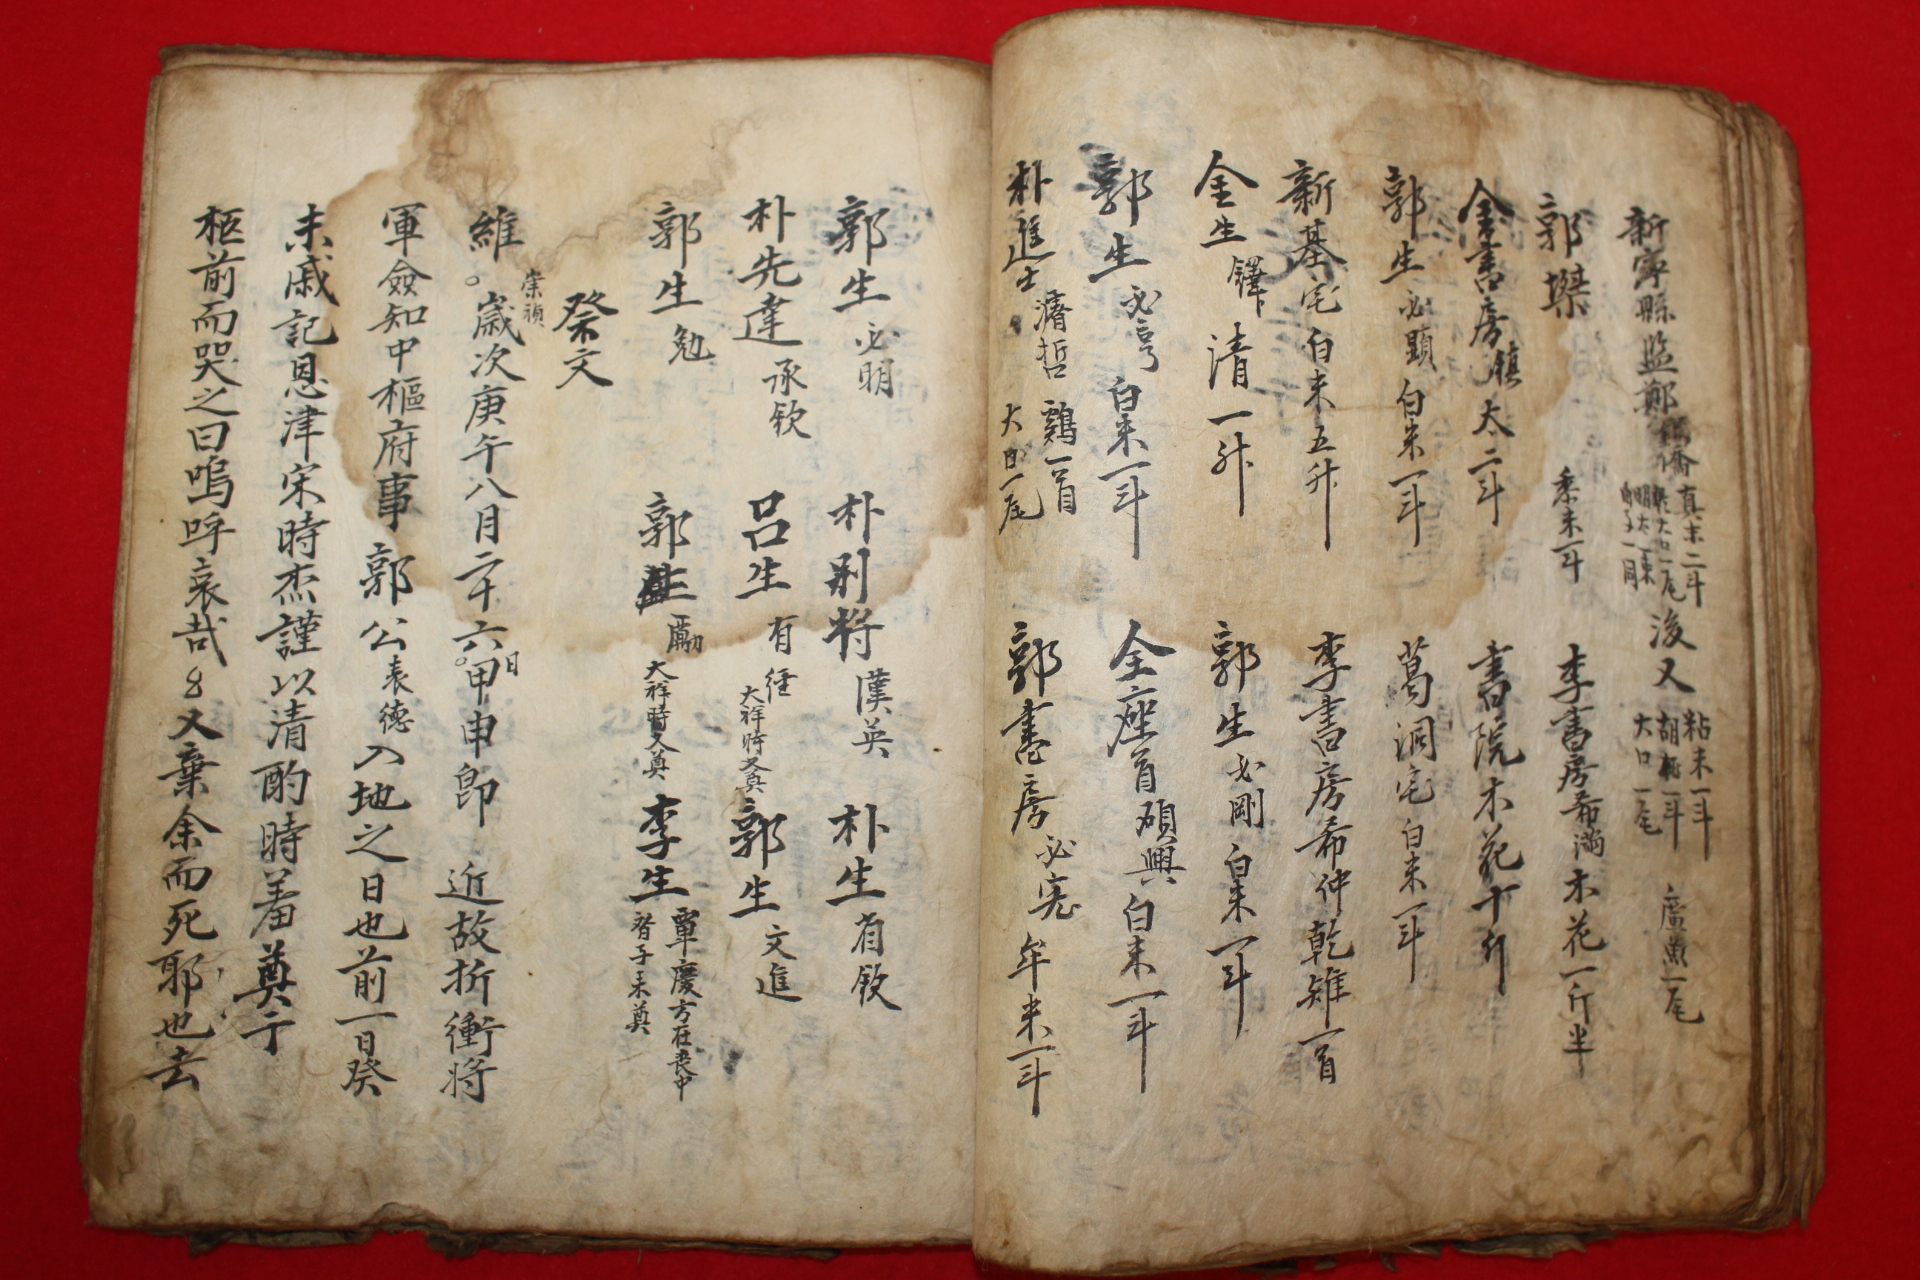 新寧縣監鄭 僑 真末二斗 乾大口一尾 明太一束 後又 粘末一斗 胡桃一斗 大口一尾 廬魚一尾
郭㙫 黍末一斗 李書房希滿木花一斤半
金書房鎮太二斗 書院木花十斤
郭生必顯白米一斗 葛洞宅白末一斗
新基宅白末五升 李書房希仲乾雉一首
金生鐸清一升 郭生必剛白末一斗
郭生必亨白末一斗 全座首碩興白末一斗
朴進士濬哲 鷄一首 大口一尾 郭書房必寃牟末一斗
郭生必明 朴別將漢英 朴生有欽
朴先達承欽 呂生有徑大祥時又奠 郭生文進
郭生勉 郭生勵大祥時又奠 李生覃慶方在喪中 聟子來奠
祭文
維崇禎歲次庚午八月二十六日甲申卽 近故折衝將
軍僉知中樞府事 郭公表德入地之日也前一日癸
未戚記恩津宋時杰謹以清酌時羞奠于
柩前而哭之曰嗚呼哀哉 又棄余而死耶也去